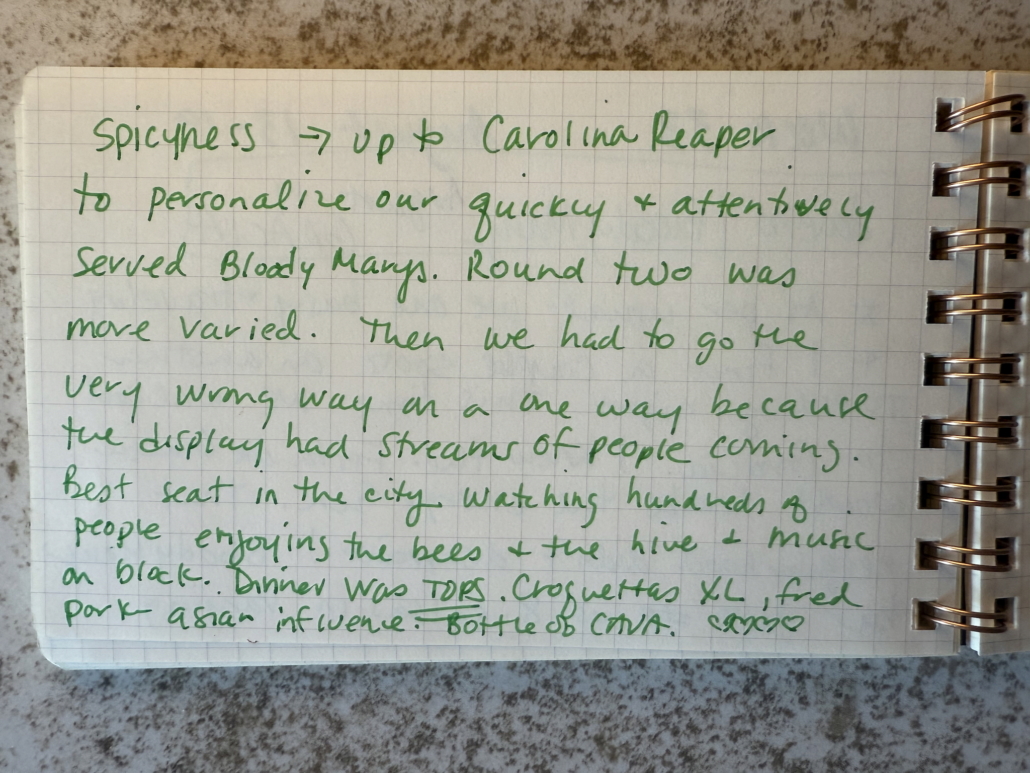 Spicyness → up to Carolina Reaper
to personalize our quickly + attentively
Served Bloody Marys. Round two was
more varied. Then we had to go the
very wrong way on a one way because
the display had streams of people coming.
Best seat in the city. Watching hundreds of
people enjoying the bees + the hive + music
on block. Dinner was TOPS. Croquettas XL, fred
pork asian influence. Bottle of CAVA. ♡♡♡♡